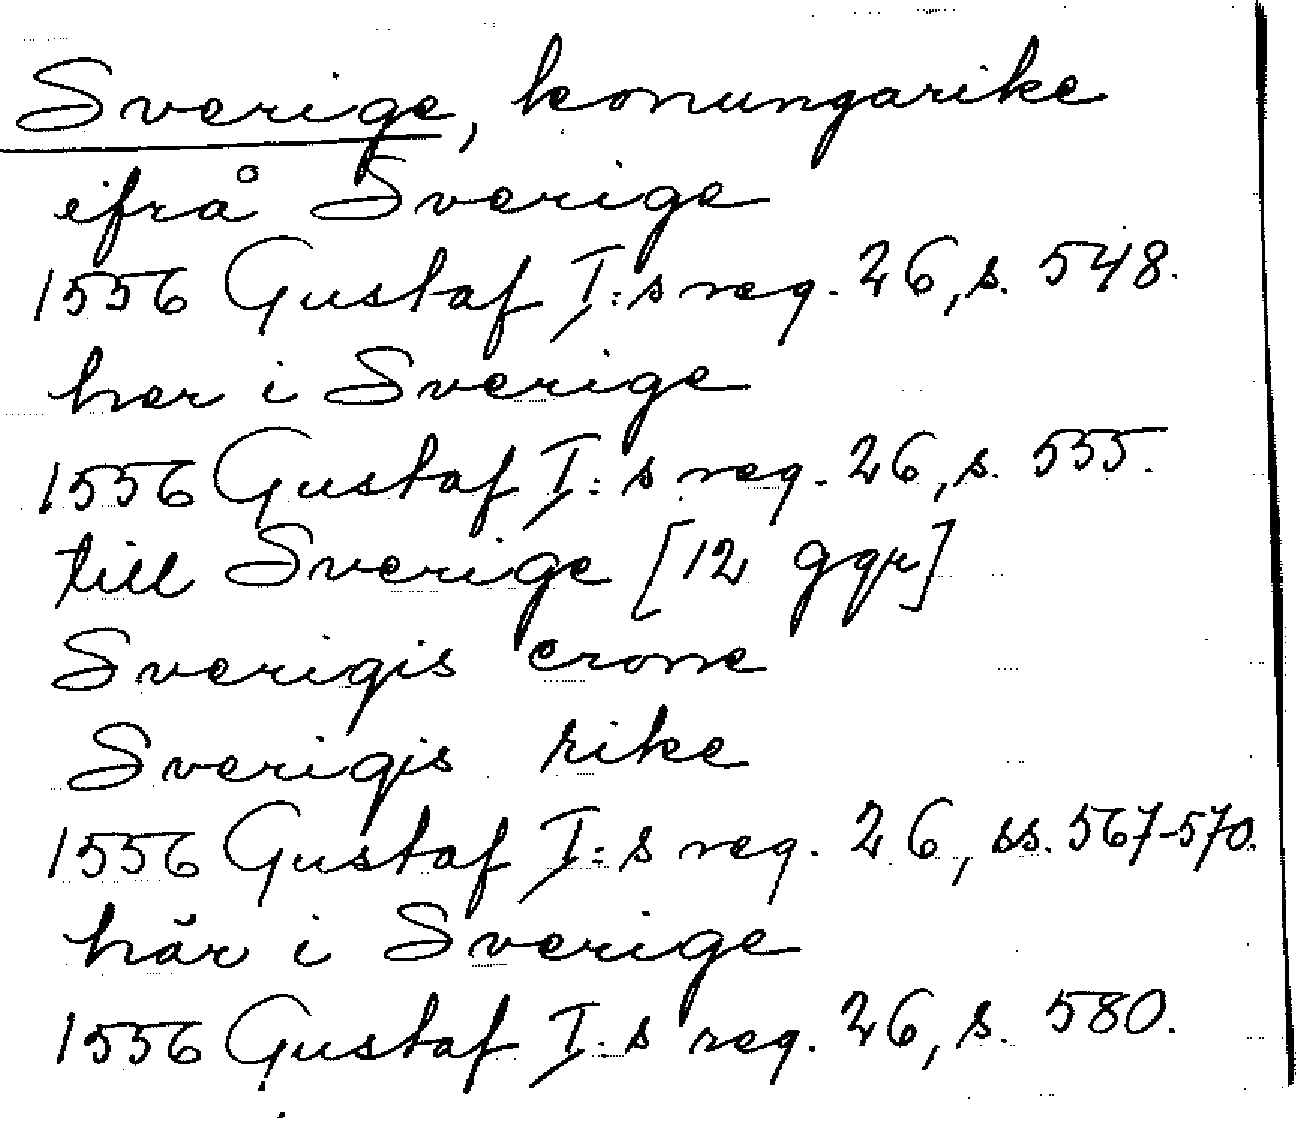 Sverige, konungarike
ifrå Sverige
1556 Gustaf I:s reg. 26, s. 548.
her i Sverige
1556 Gustaf I:s reg. 26, s. 555.
till Sverige [12 ggr]
Sverigis crone
Sverigis rike
1556 Gustaf I:s reg. 26, ss. 567-570.
här i Sverige
1556 Gustaf I:s reg. 26, s. 580.